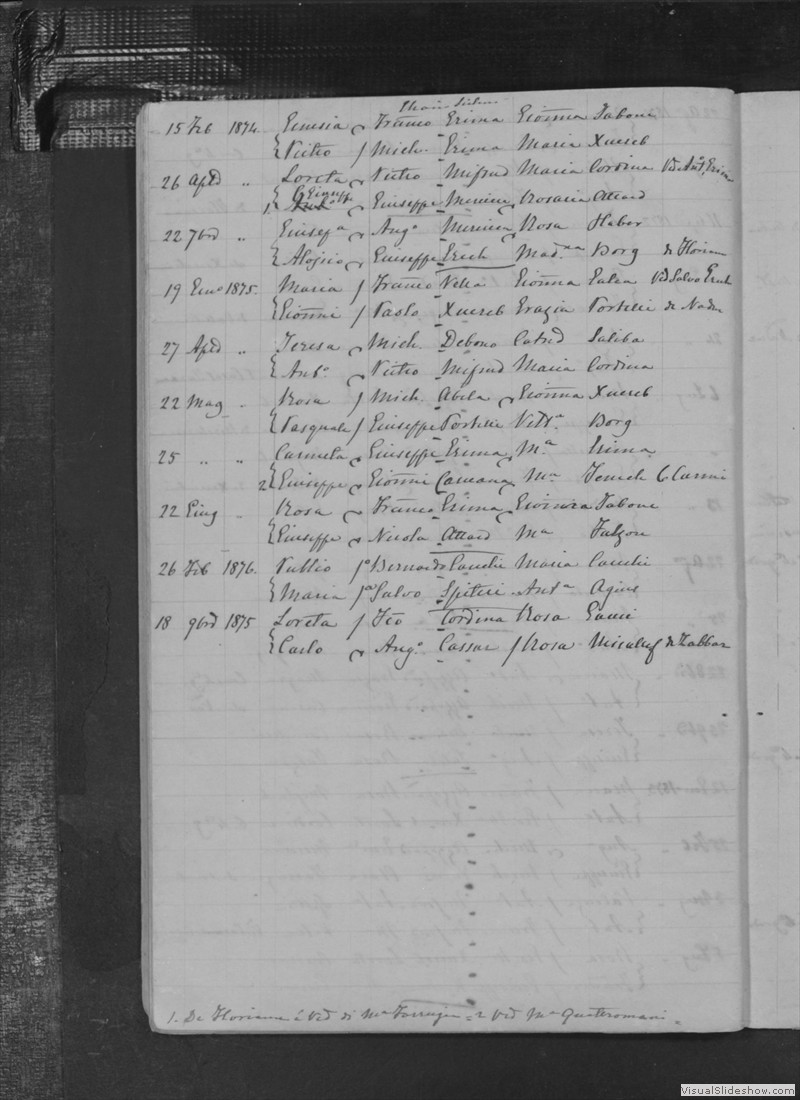 15 Feb 1874. Franco Grima Giōnna Tabone
Pietro Mich. Grima Maria Xuereb
26 Aple " Loreta Pietro Mifsud Maria Cordina Vd Antº Grima
1. Giuseppe Giuseppe Rosaria Attard
22 7bre " Giusepª Angº Rosa Haber
Aloisio Giuseppe Grech Madna Borg de Floriana
19 Geno 1875. Maria Franco Vella Giōnna Galea Vd Salvo Grech
Giōnni Paolo Xuereb Grazia Portelli de Nadur
27 Aple " Teresa Mich. Debono Catned Saliba
Antº Pietro Mifsud Maria Cordina
22 Mag " Rosa Mich. Abela Giōnna Xuereb
Pasquale Giuseppe Portelli Vittª Borg
25 " " Carmela Giuseppe Grima Mª Grima
2 Giuseppe Giōnni Camana Mª
22 Giug " Rosa Franco Grima Tabone
Giuseppe Nicola Attard Mª Falzon
26 Feb 1876. Publio Bernardo Camilleri Maria Camilleri
Maria Salvo Spiteri Antª Agius
18 9bre 1875 Loreta Fco Cordina Rosa Gauci
Carlo Angº Cassar Rosa Micallef de Zabbar
1. De Floriana è Vdo di Mª Farrugia = 2 Vdo Mª Quateromani.
VisualSlideshow.com